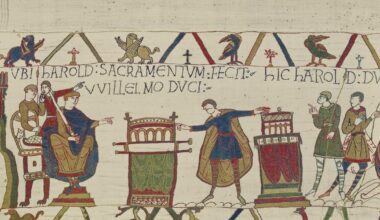 VBI hAROLD : SACRAMENTVM : FECIT : hIC hAROLD : DV
VVILLELMO DVCI :